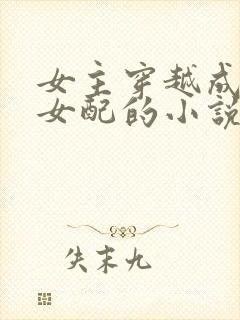 女主穿越成
女配的小说
失末九